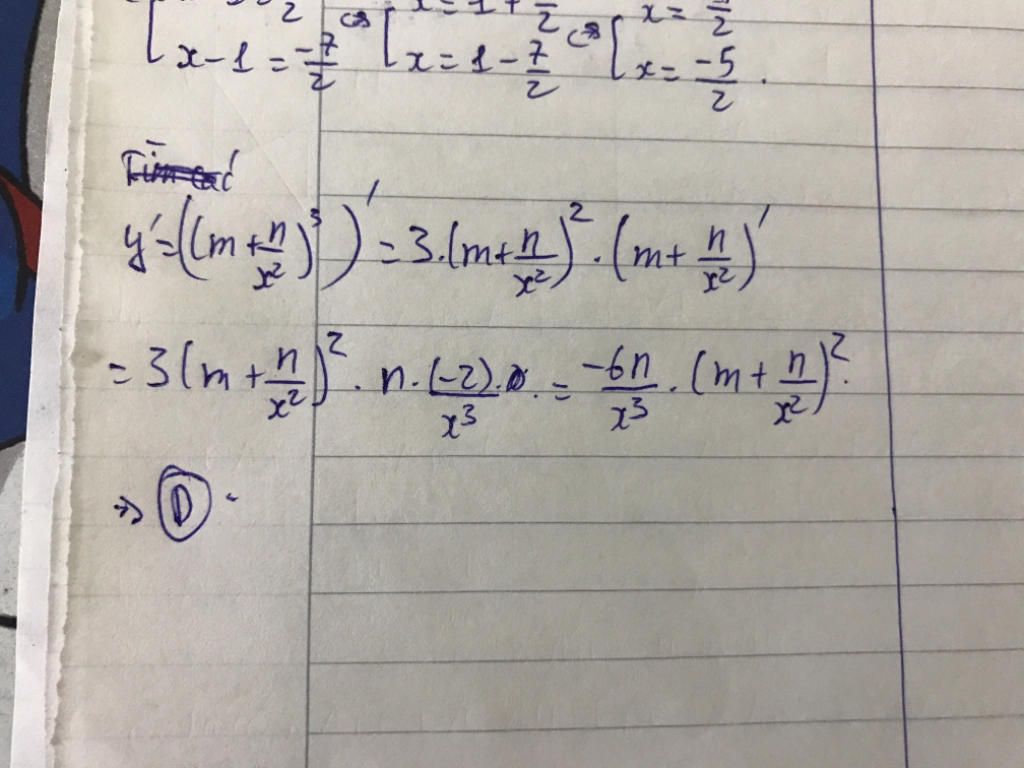 x - 1 = -7/2 [ x = 1 - 7/2 [ x = -5/2 .
y' = ((m + n/x²)³)' = 3.(m + n/x²)² . (m + n/x²)'
= 3(m + n/x²)² . n . (-2)/x³ . = -6n/x³ . (m + n/x²)² .
=> D .